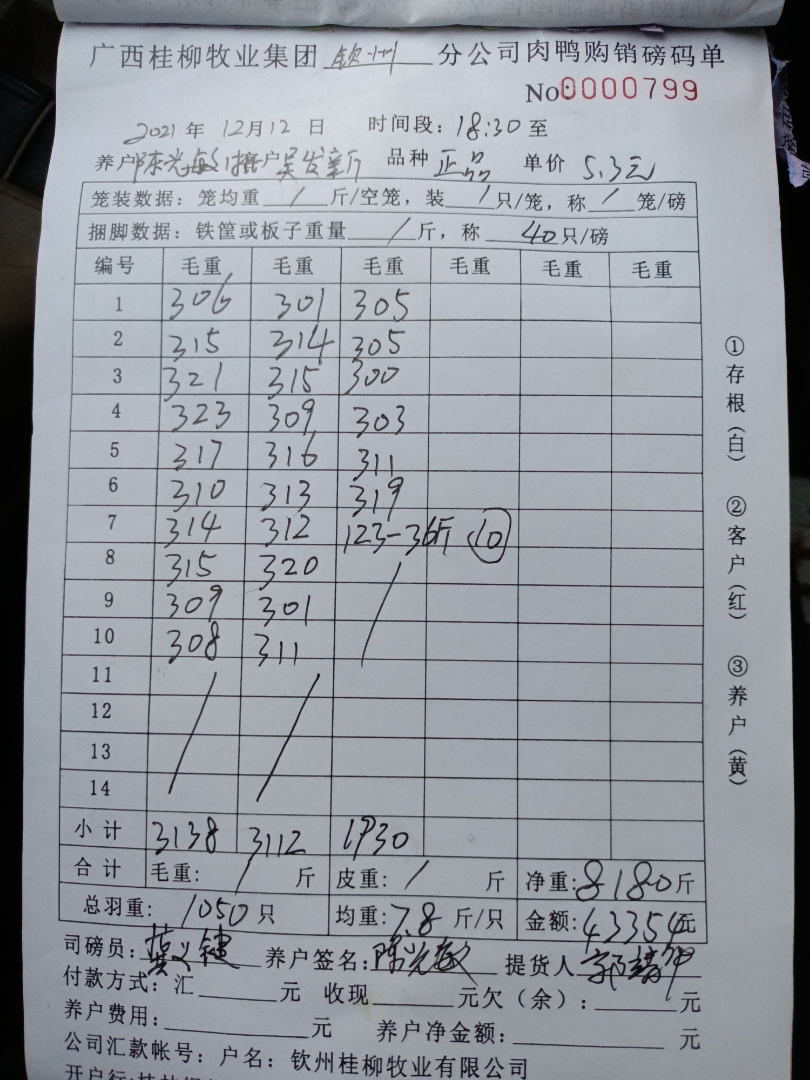 广西桂柳牧业集团 钦州 分公司肉鸭购销磅码单
No:0000799
2021年 12月12日 时间段:18:30至
养户 陈光敏 客户吴发新 品种 正品 单价 5.3元
笼装数据:笼均重 / 斤/空笼,装 / 只/笼,称 / 笼/磅
捆脚数据:铁筐或板子重量 / 斤,称 40只/磅
编号 毛重 毛重 毛重 毛重 毛重 毛重
1 306 301 305
2 315 314 305
3 321 315 300
4 323 309 303
5 317 316 311
6 310 313 319
7 314 312 123-36斤 10
8 315 320 /
9 309 301
10 308 311
11 / /
12
13
14
小计 3138 3112 1930
合计 毛重: / 斤 皮重: / 斤 净重:8180斤
总羽重: 1050只 均重:7.8斤/只 金额:43354元
司磅员: 养户签名:陈光敏 提货人
付款方式:汇 元 收现 元欠(余): 元
养户费用: 元 养户净金额: 元
公司汇款帐号:户名:钦州桂柳牧业有限公司
开户行:桂林银
①存根(白) ②客户(红) ③养户(黄)